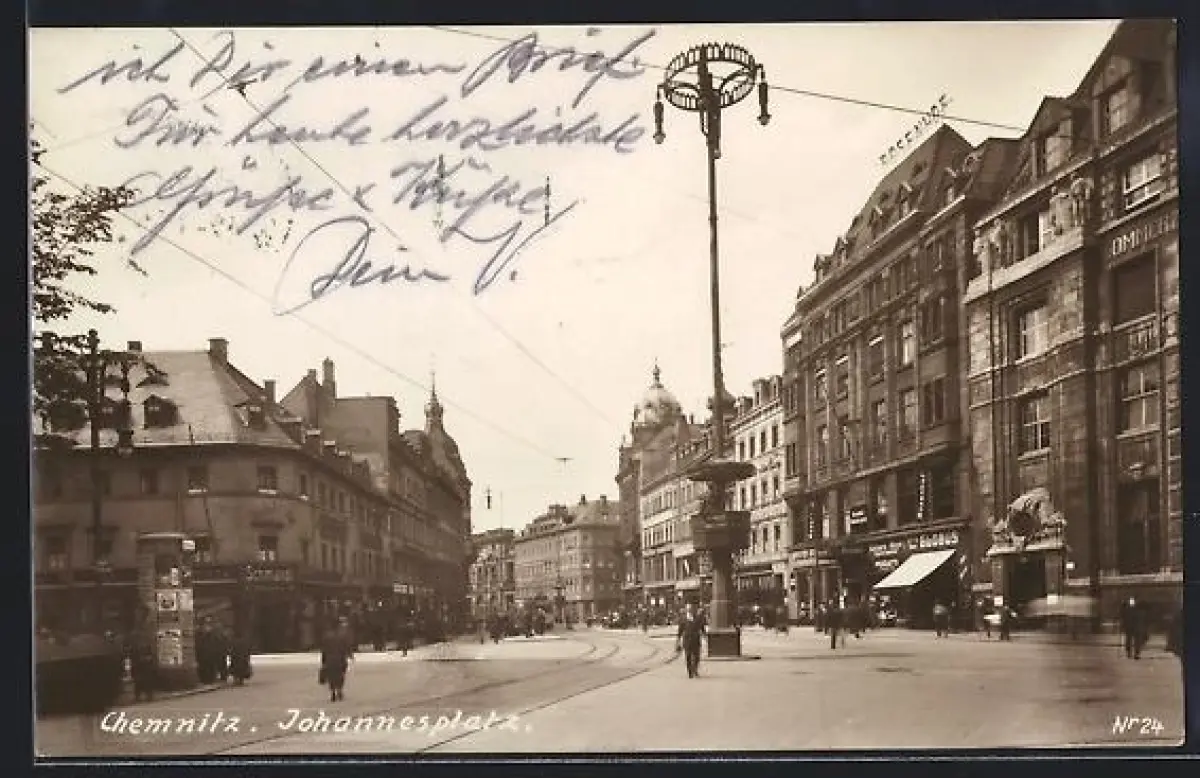 ich Dir einen Brief.
Für heute herzlichste
Grüße & Küsse
Dein
Chemnitz. Johannesplatz.
Nr 24